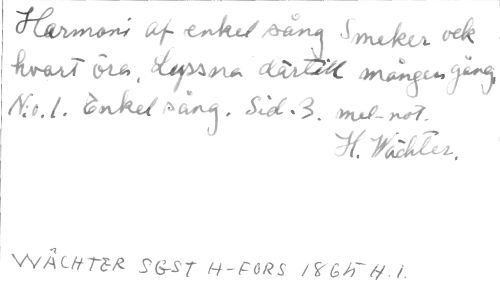 Harmoni af enkel sång Smeker vek
hvart öra, Lyssna därtill mången gång.
N:o. 1. Enkel sång. Sid. 3. mel-not.
H. Wächter.
WÄCHTER SGST H-FORS 1865 H. 1.